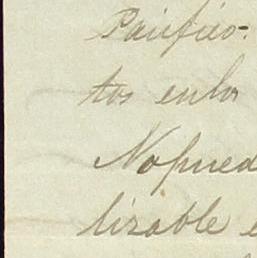 Pacifico.
tos enlos
Nopued
lizable e